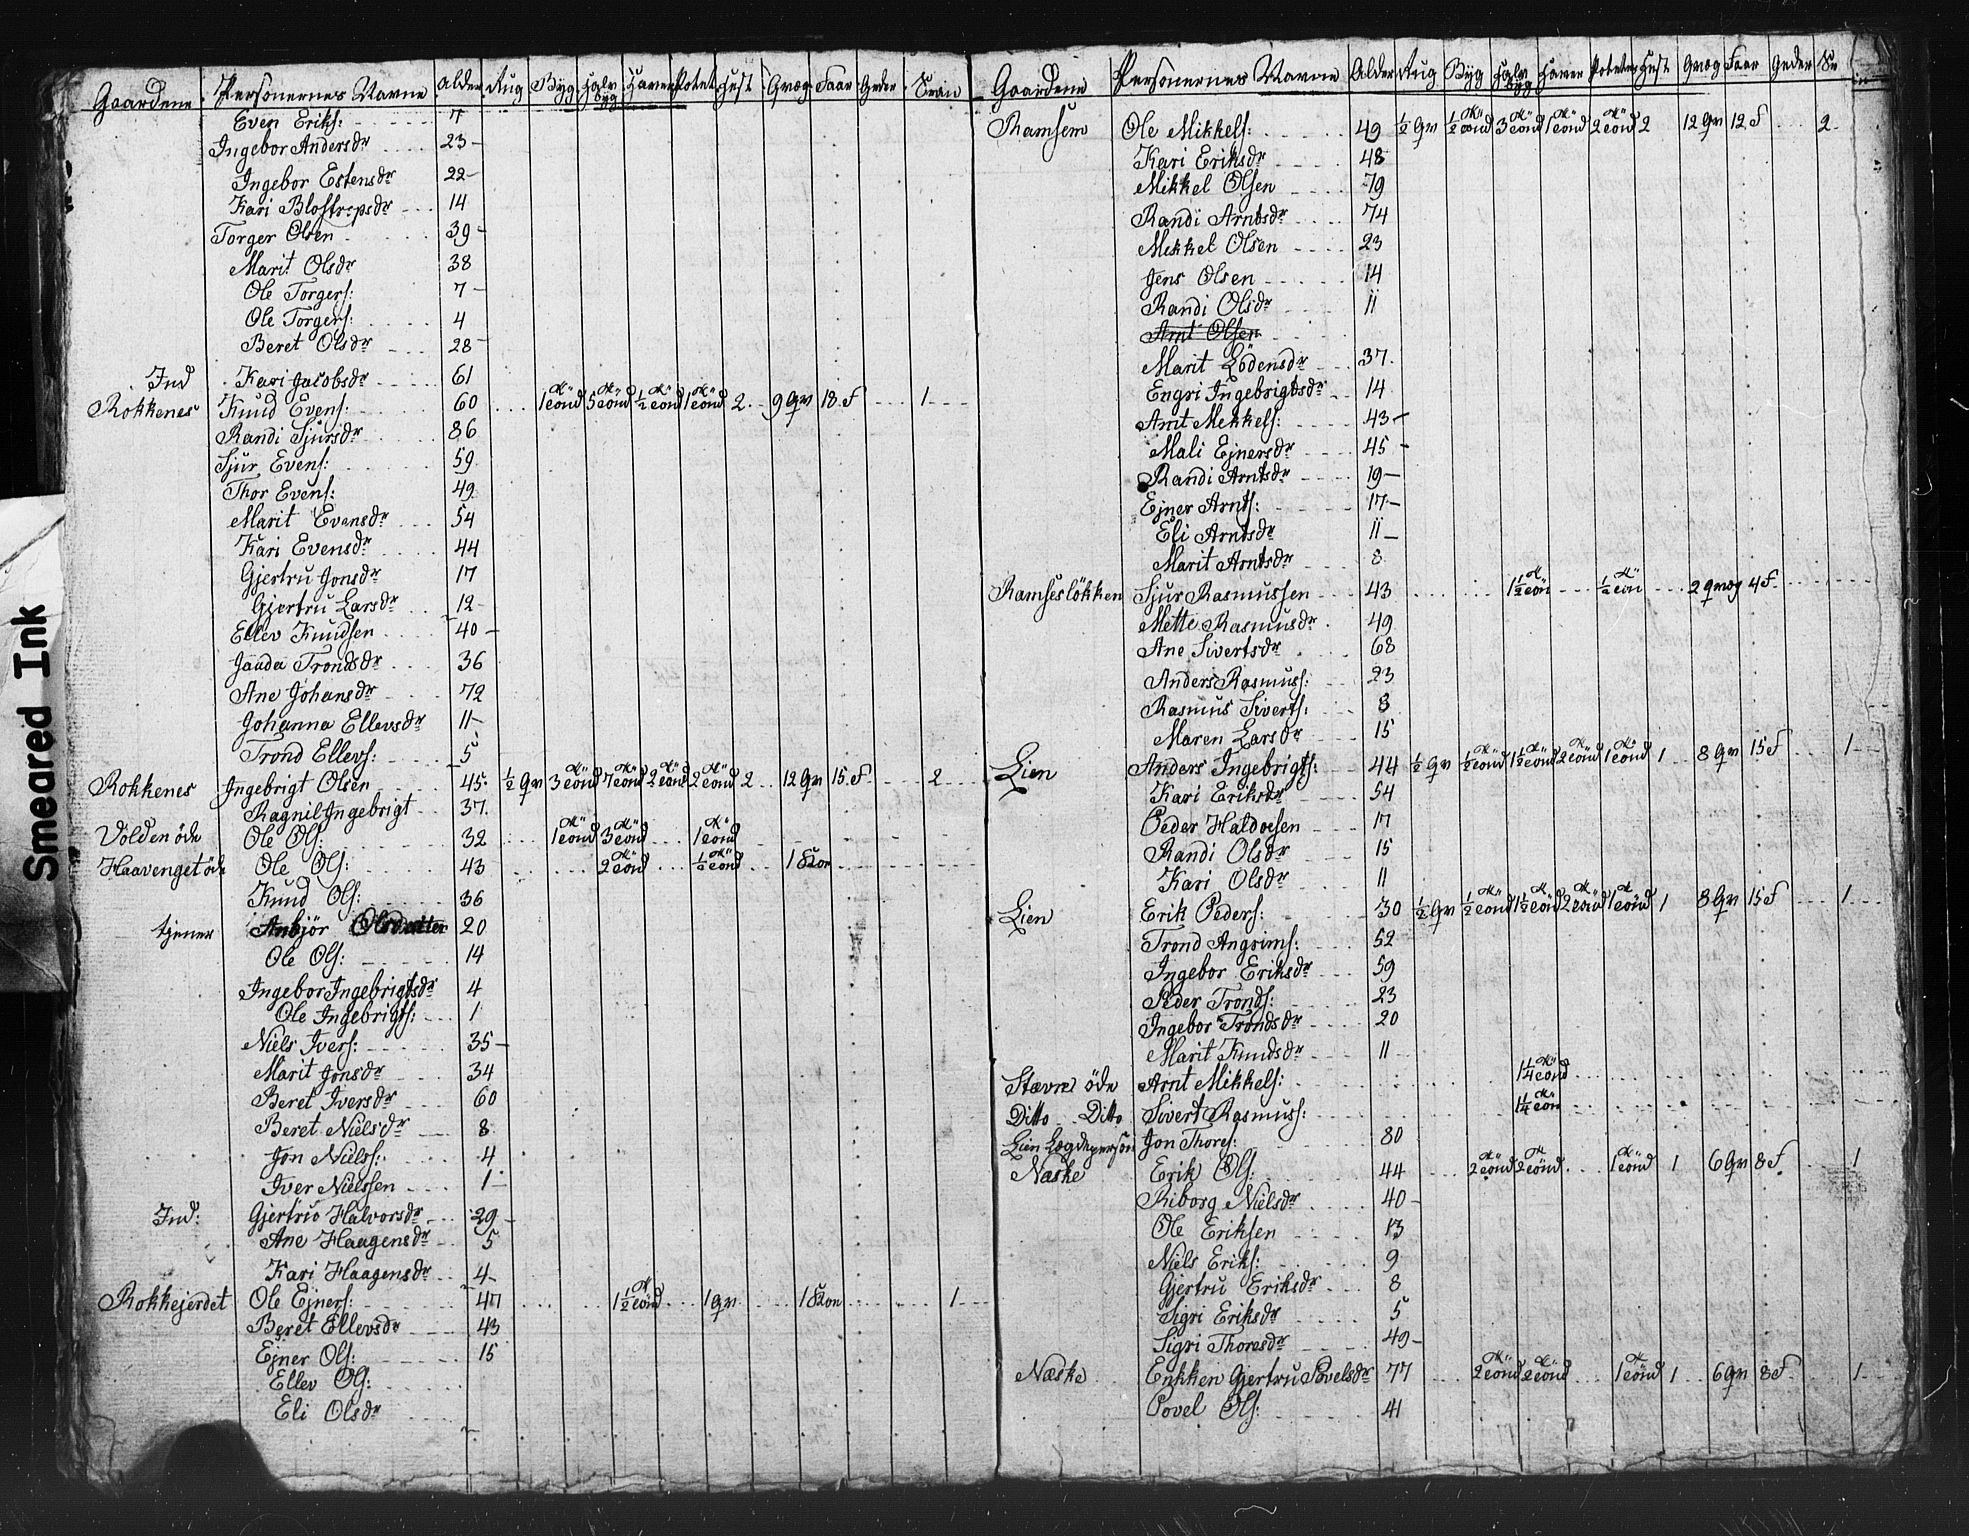 Gaardene Personernes Navne Alder Rug Byg Halv Byg Haver Potet Hest Qvæg Faar Geder Svin
Even Eriks: 7
Ingebor Andersdr 23
Ingebor Estensdr 22
Kari 14
Torger Olsen 39
Marit Olsdr 38
Ole Torgers: 7
Ole Torgers: 4
Beret Olsdr 28
Ind Kari Jacobsdr 61
Rokkenes Knud Evens: 60 1 Tönd 5 Tönd ½ Tönd 1 Tönd 2 9 Qv 18 F 1
Randi Sjursdr 86
Sjur Evens: 59
Thor Evens: 49
Marit Evensdr 54
Kari Evensdr 44
Gjertru Jonsdr 17
Gjertru Larsdr 12
Ellev Knudsen 40
Trondsdr 36
Ane Johansdr 72
Johanna Ellevsdr 11
Trond Ellevs: 5
Rokkenes Ingebrigt Olsen 45 ½ Qv 3 Tönd 7 Tönd 2 Tönd 2 Tönd 2 12 Qv 15 F 2
Ragnil Ingebrigt 37
Volden öde Ole Ols: 32 1 Tönd 3 Tönd 1 Tönd
Haavenget öde Ole Ols: 43 2 Tönd Tönd 1
Knud Ols: 36
tjener Anbjör Olsdatter 20
Ole Ols: 14
Ingebor Ingebrigtsdr 4
Ole Ingebrigts: 1
Niels Ivers: 35
Marit Jonsdr 34
Beret Iversdr 60
Beret Nielsdr 8
Jon Nielss: 4
Iver Nielssen 1
Ind: Gjertru Halvorsdr 29
Ane Haagensdr 5
Kari Haagensdr 4
Rokkejerdet Ole Ejners: 47 1½ Tönd 1 Qv 1 1
Beret Ellevsdr 43
Ejner Ols: 15
Ellev Ols:
Eli Olsdr
Gaardene Personernes Navne Alder Rug Byg Halv Byg Haver Poteter Hest Qvæg Faar Geder Sv in
Ramsem Ole Mikkels: 49 ½ Qv ½ Tönd 3 Tönd 1 Tönd 2 Tönd 2 12 Qv 12 F 2
Kari Eriksdr 48
Mikkel Olsen 79
Randi Arntsdr 74
Mekkel Olsen 23
Jens Olsen 14
Randi Olsdr 11
Arnt Olsen
Marit Lödensdr 37
Engri Ingebrigtsdr 14
Arnt Mekkels: 43
Mali Ejnersdr 45
Randi Arntsdr 19
Ejner Arnts: 17
Eli Arntsdr 11
Marit Arntsdr 8
Ramseslökken Sjur Rasmussen 43 1½ Tön ½ Tön 2 Qvæg 4 F
Mette Rasmusdr 49
Ane Sivertsdr 68
Anders Rasmuss: 23
Rasmus Siverts: 8
Maren Larsdr 15
Lien Anders Ingebrigts: 44 ½ Qv ½ Tönd 1½ Tönd 2 Tönd 1 Tönd 1 8 Qv 15 F 1
Kari Eriksdr 54
Peder Haldorsen 17
Randi Olsdr 15
Kari Olsdr 11
Lien Erik Peders: 30 ½ Qv ½ Tönd 1½ Tönd 2 Tönd 1 Tönd 1 8 Qv 15 F 1
Trond Angrims: 52
Ingebor Eriksdr 59
Peder Tronds: 23
Ingebor Trondsdr 20
Marit Knudsdr 11
Stavne öde Arnt Mikkels: 1¼ Tönd
Ditto Ditto Sivert Rasmuss: 1¼ Tön
Lien Lægdsperson Jon Thores: 80
Næske Erik Ols: 44 2 Tönd 2 Tönd 1 Tönd 1 6 Qv 8 F 1
Riborg Nielsdr 40
Ole Eriksen 13
Niels Eriks: 9
Gjertru Eriksdr 8
Sigri Eriksdr 5
Sigri Thoresdr 49
Næske Enkken Gjertru Povelsdr 77 2 Tönd 2 Tönd 1 Tönd 1 6 Qv 8 F 1
Povel Ols: 41
Smeared Ink